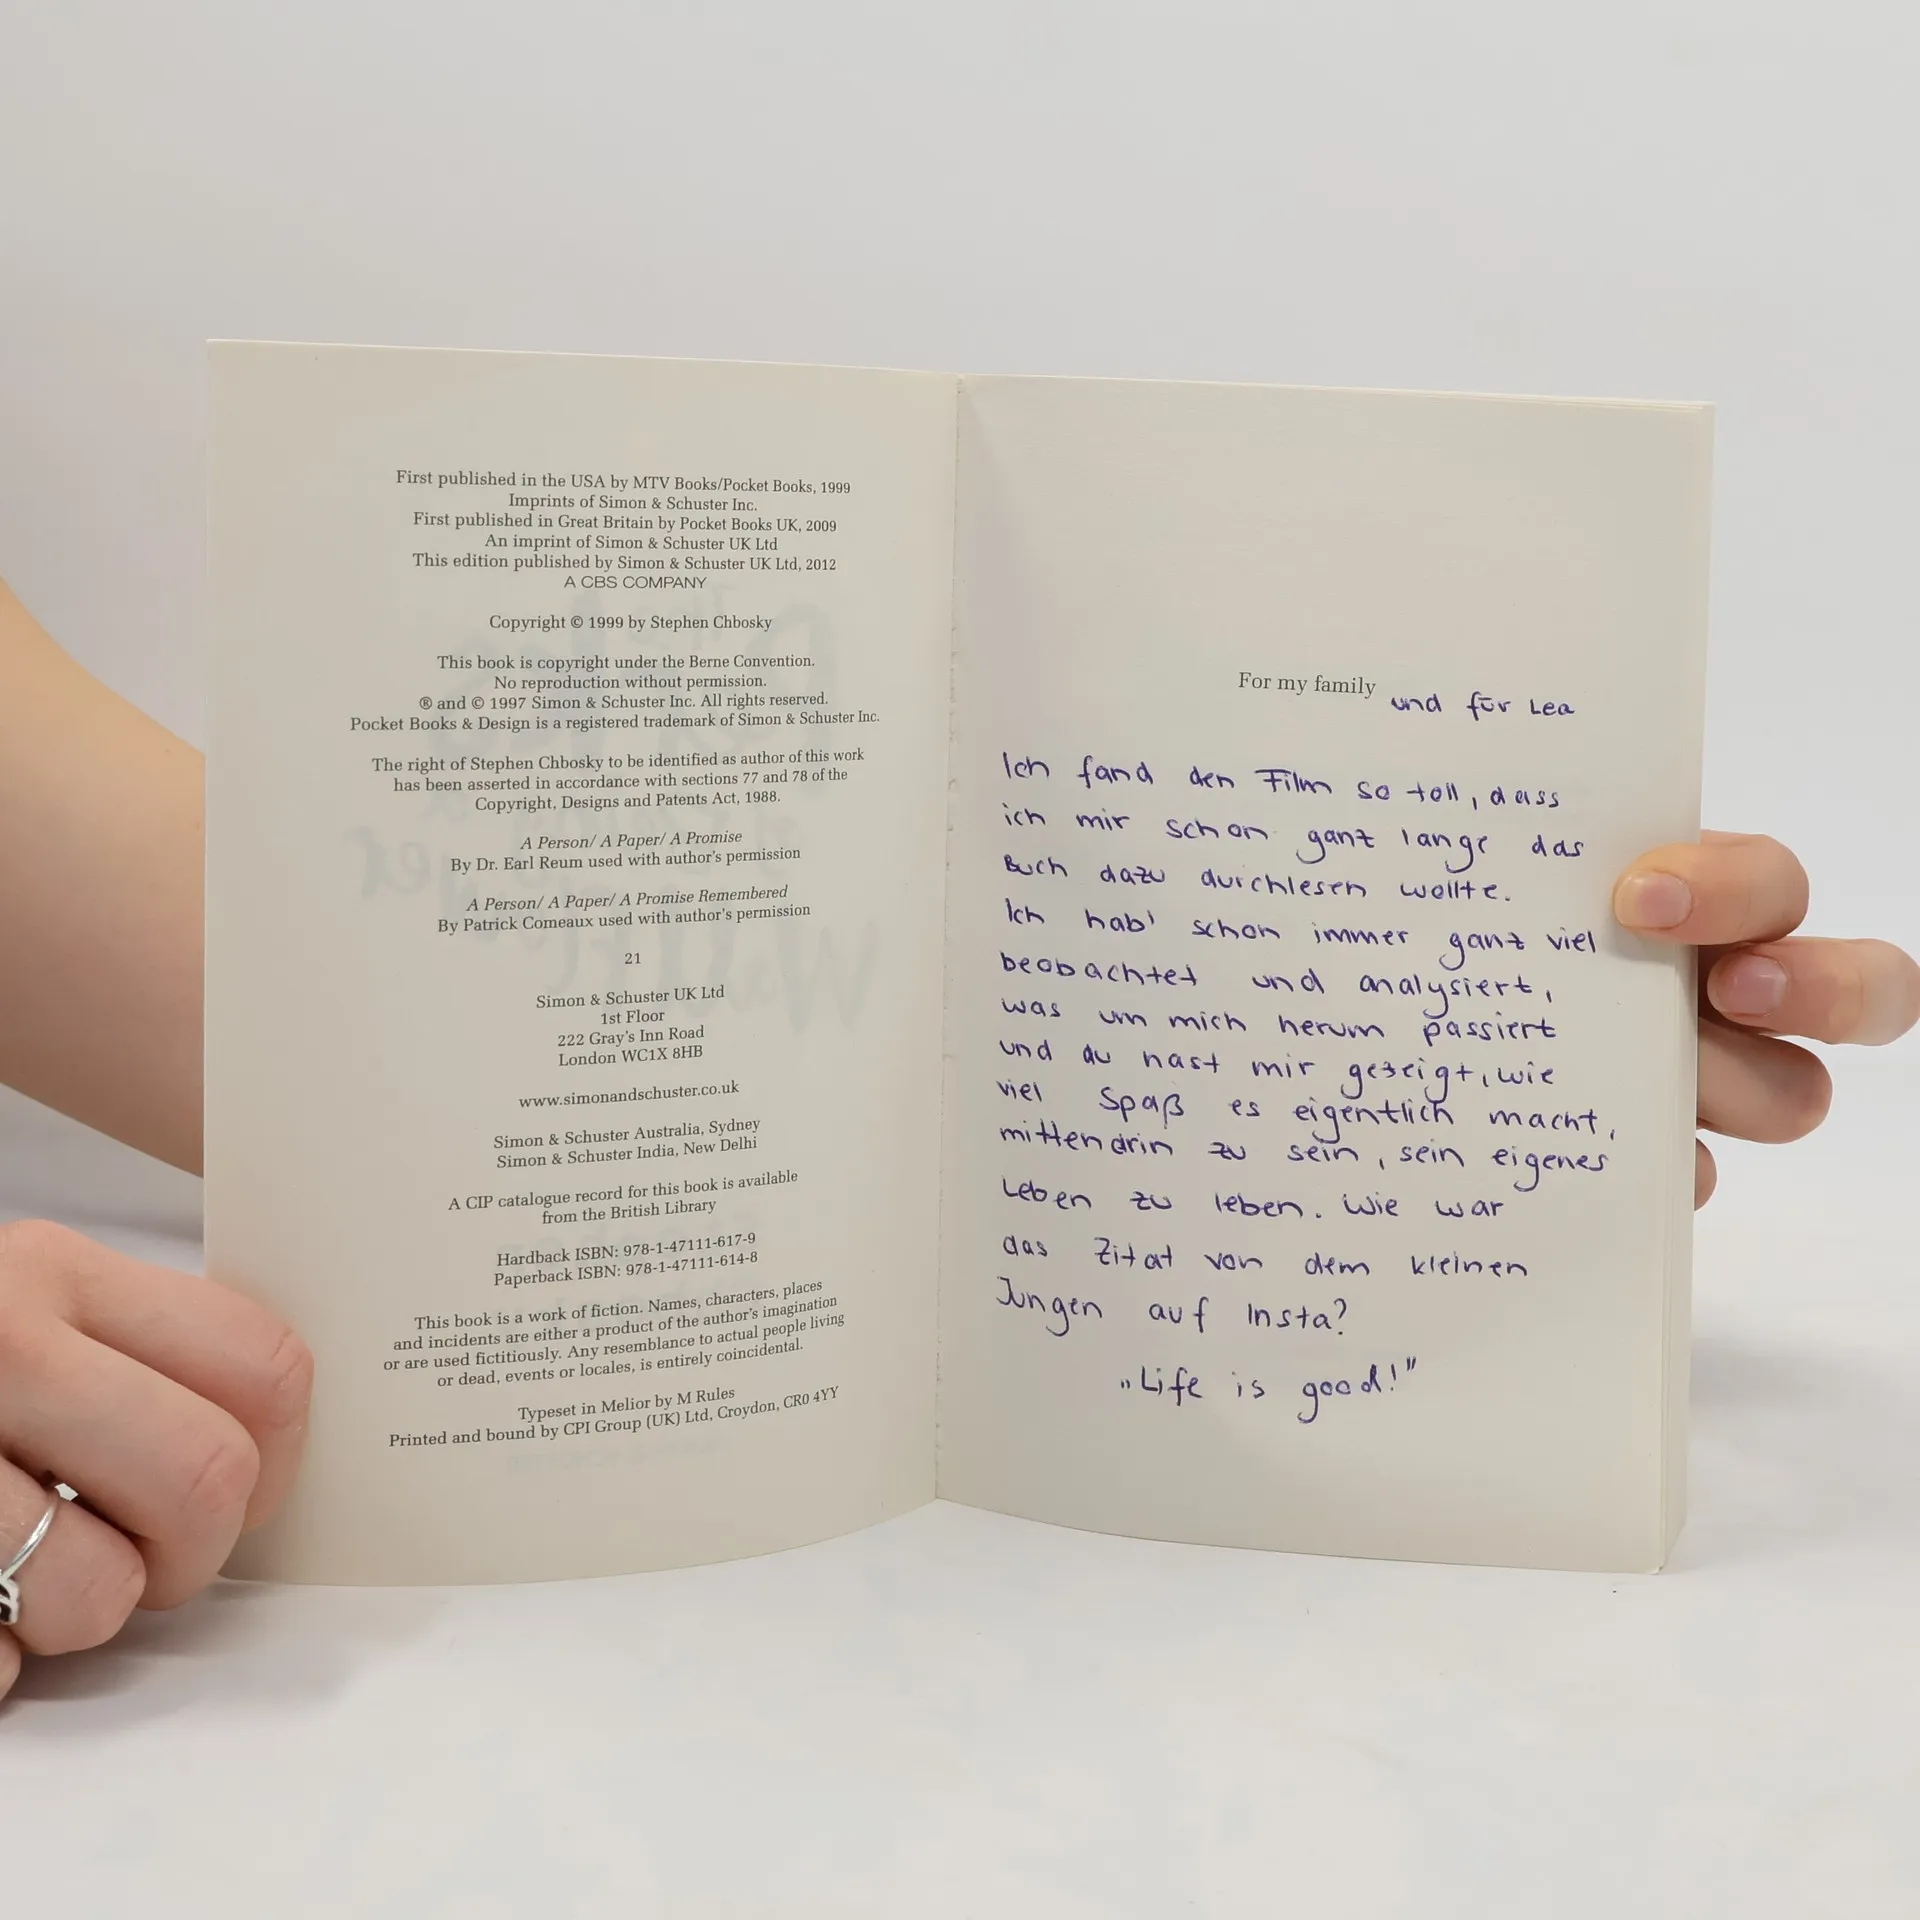 First published in the USA by MTV Books/Pocket Books, 1999
Imprints of Simon & Schuster Inc.
First published in Great Britain by Pocket Books UK, 2009
An imprint of Simon & Schuster UK Ltd
This edition published by Simon & Schuster UK Ltd, 2012
A CBS COMPANY
Copyright © 1999 by Stephen Chbosky
This book is copyright under the Berne Convention.
No reproduction without permission.
® and © 1997 Simon & Schuster Inc. All rights reserved.
Pocket Books & Design is a registered trademark of Simon & Schuster Inc.
The right of Stephen Chbosky to be identified as author of this work
has been asserted in accordance with sections 77 and 78 of the
Copyright, Designs and Patents Act, 1988.
A Person/ A Paper/ A Promise
By Dr. Earl Reum used with author's permission
A Person/ A Paper/ A Promise Remembered
By Patrick Comeaux used with author's permission
21
Simon & Schuster UK Ltd
1st Floor
222 Gray's Inn Road
London WC1X 8HB
www.simonandschuster.co.uk
Simon & Schuster Australia, Sydney
Simon & Schuster India, New Delhi
A CIP catalogue record for this book is available
from the British Library
Hardback ISBN: 978-1-47111-617-9
Paperback ISBN: 978-1-47111-614-8
This book is a work of fiction. Names, characters, places
and incidents are either a product of the author's imagination
or are used fictitiously. Any resemblance to actual people living
or dead, events or locales, is entirely coincidental.
Typeset in Melior by M Rules
Printed and bound by CPI Group (UK) Ltd, Croydon, CR0 4YY
For my family und für Lea
Ich fand den Film so toll, dass
ich mir schon ganz lange das
Buch dazu durchlesen wollte.
Ich hab' schon immer ganz viel
beobachtet und analysiert,
was um mich herum passiert
und du hast mir gezeigt, wie
viel Spaß es eigentlich macht,
mittendrin zu sein, sein eigenes
Leben zu leben. Wie war
das Zitat von dem kleinen
Jungen auf Insta?
„Life is good!"